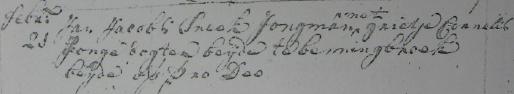 Febr:
21 Jan Jacobs Sneek Jongman, met grietje Cornelis
Jonge dogter beyde te benningbroek
beyde op pro Deo